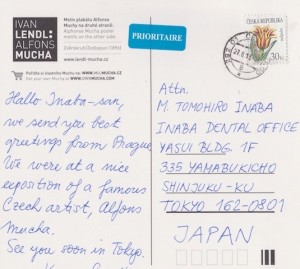 IVAN
LENDL:
ALFONS
MUCHA
Motiv plakátu Alfonse
Muchy na druhé straně:
Alphonse Mucha poster
motifs on the other side:
Zdenko
www.lendlmucha.cz
PRIORITAIRE
ČESKÁ REPUBLIKA
30
Hallo Inaba-san,
we send you best
greetings from Prague.
We were at a nice
exposition of a famous
Czech artist, Alfons
Mucha.
See you soon in Tokyo.
Attn.
M. TOMOHIRO INABA
INABA DENTAL OFFICE
YASUI BLDG. 1F
335 YAMABUKICHO
SHINJUKU-KU
TOKYO 162-0801
JAPAN